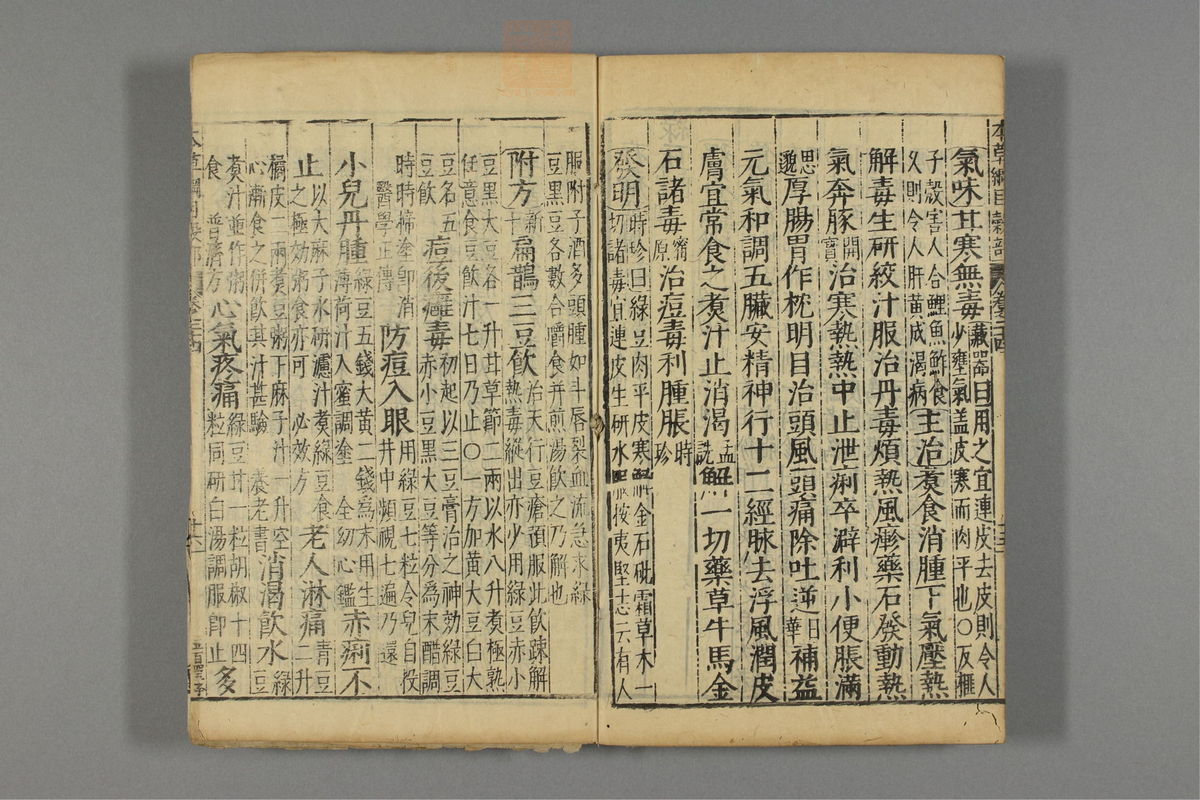 氣味甘寒無毒藏器曰用之宜連皮去皮則令人
少壅氣盖皮寒而肉平也○反榧
子殻害人合鯉魚鮓食
久則令人肝黃成渴病主治煮食消腫下氣壓熱
解毒生研絞汁服治丹毒煩熱風疹藥石發動熱
氣奔豚開寶治寒熱熱中止泄痢卒澼利小便脹滿
思邈厚腸胃作枕明目治頭風頭痛除吐逆日華補益
元氣和調五臟安精神行十二經脉去浮風潤皮
膚宜常食之煮汁止消渴孟詵解一切藥草牛馬金
石諸毒寗原治痘毒利腫脹時珍
發明時珍曰綠豆肉平皮寒解金石砒霜草木一
切諸毒宜連皮生研水服按夷堅志云有人
服附子酒多頭腫如斗唇裂血流急求綠
豆黑豆各數合嚼食并煎湯飲之乃解也
附方新十扁鵲三豆飲治天行豆瘡預服此飲疎解
熱毒縱出亦少用綠豆赤小
豆黑大豆各一升甘草節二兩以水八升煮極熟
任意食豆飲汁七日乃止○一方加黃大豆白大
豆名五
豆飲痘後癰毒初起以三豆膏治之神効綠豆
赤小豆黑大豆等分爲末醋調
時時掃塗卽消
醫學正傳防痘入眼用綠豆七粒令兒自投
井中頻視七遍乃還
小兒丹腫綠豆五錢大黃二錢爲末用生
薄荷汁入蜜調塗 全幼心鑑赤痢不
止以大麻子水研濾汁煮綠豆食
之極効粥食亦可 必效方老人淋痛青豆
二升
橘皮二兩煮豆粥下麻子汁一升空
心漸食之併飲其汁甚驗 養老書消渴飲水綠豆
煮汁並作粥
食 普濟方心氣疼痛綠豆廿一粒胡椒十四
粒同研白湯調服卽止多